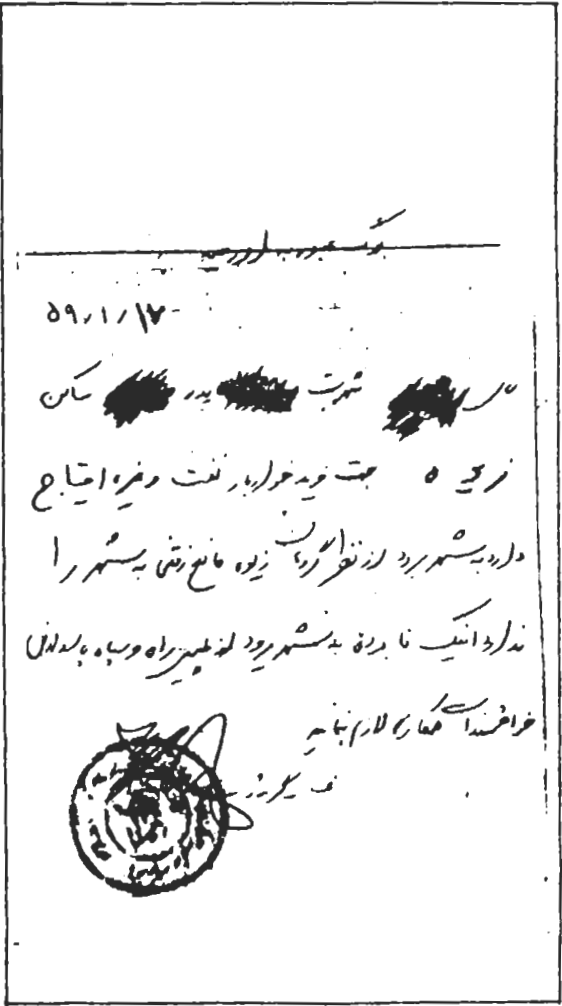 برگ عبور به ارومیه
۵۹/۱/۱۷
شهرت پدر ساکن
قریه جهت خرید خواربار نفت و غیره احتیاج
دارد به شهر برود از نظر گروهان زیوه مانع رفتن به شهر را
ندارد اینک نامبرده به شهر میرود از پلیس راه و سپاه پاسداران
خواهشمند است همکاری لازم بنمائید